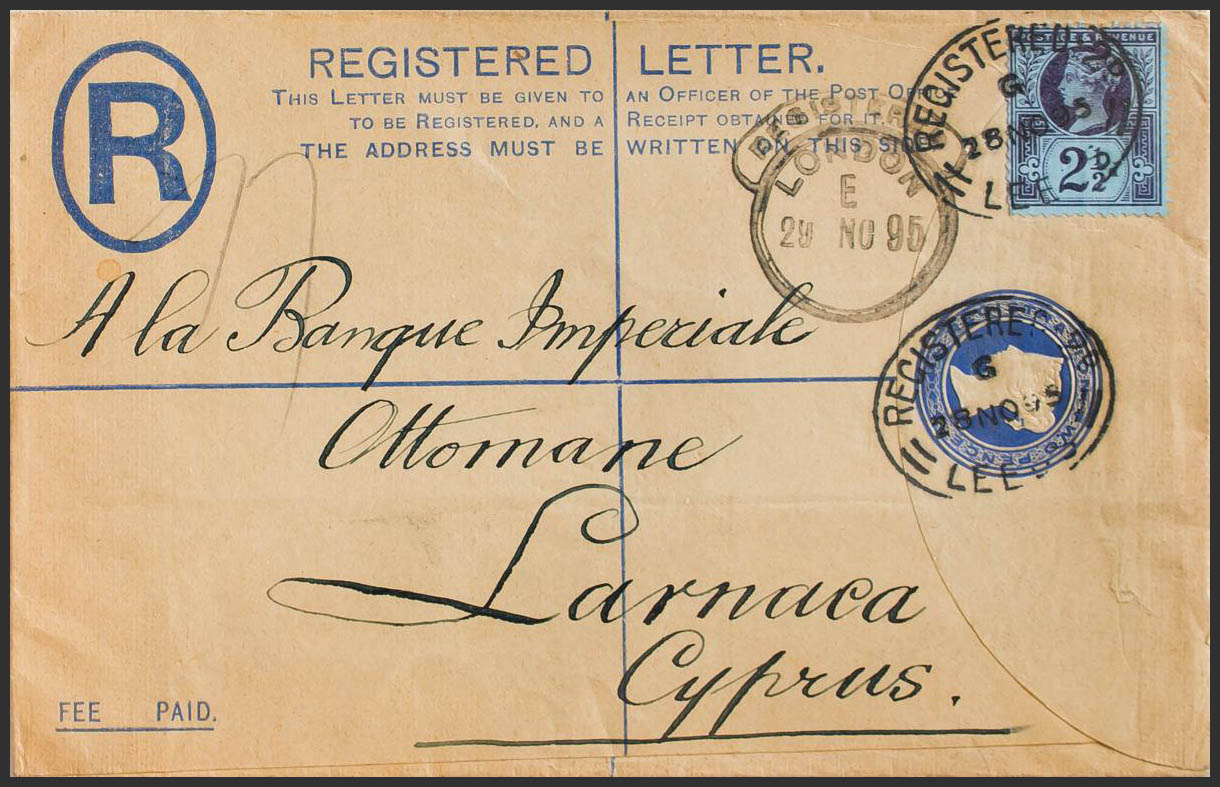 R
REGISTERED LETTER.
THIS LETTER MUST BE GIVEN TO AN OFFICER OF THE POST OFFICE
TO BE REGISTERED, AND A RECEIPT OBTAINED FOR IT.
THE ADDRESS MUST BE WRITTEN ON THIS SIDE
POSTAGE & REVENUE
2½D
REGISTERED
G
28 NO
LEE
REGISTERED
LONDON
E
29 NO 95
A la Banque Imperiale
Ottomane
Larnaca
Cyprus.
REGISTERED
G
28 NO 95
LEE
TWO PENCE
FEE PAID.